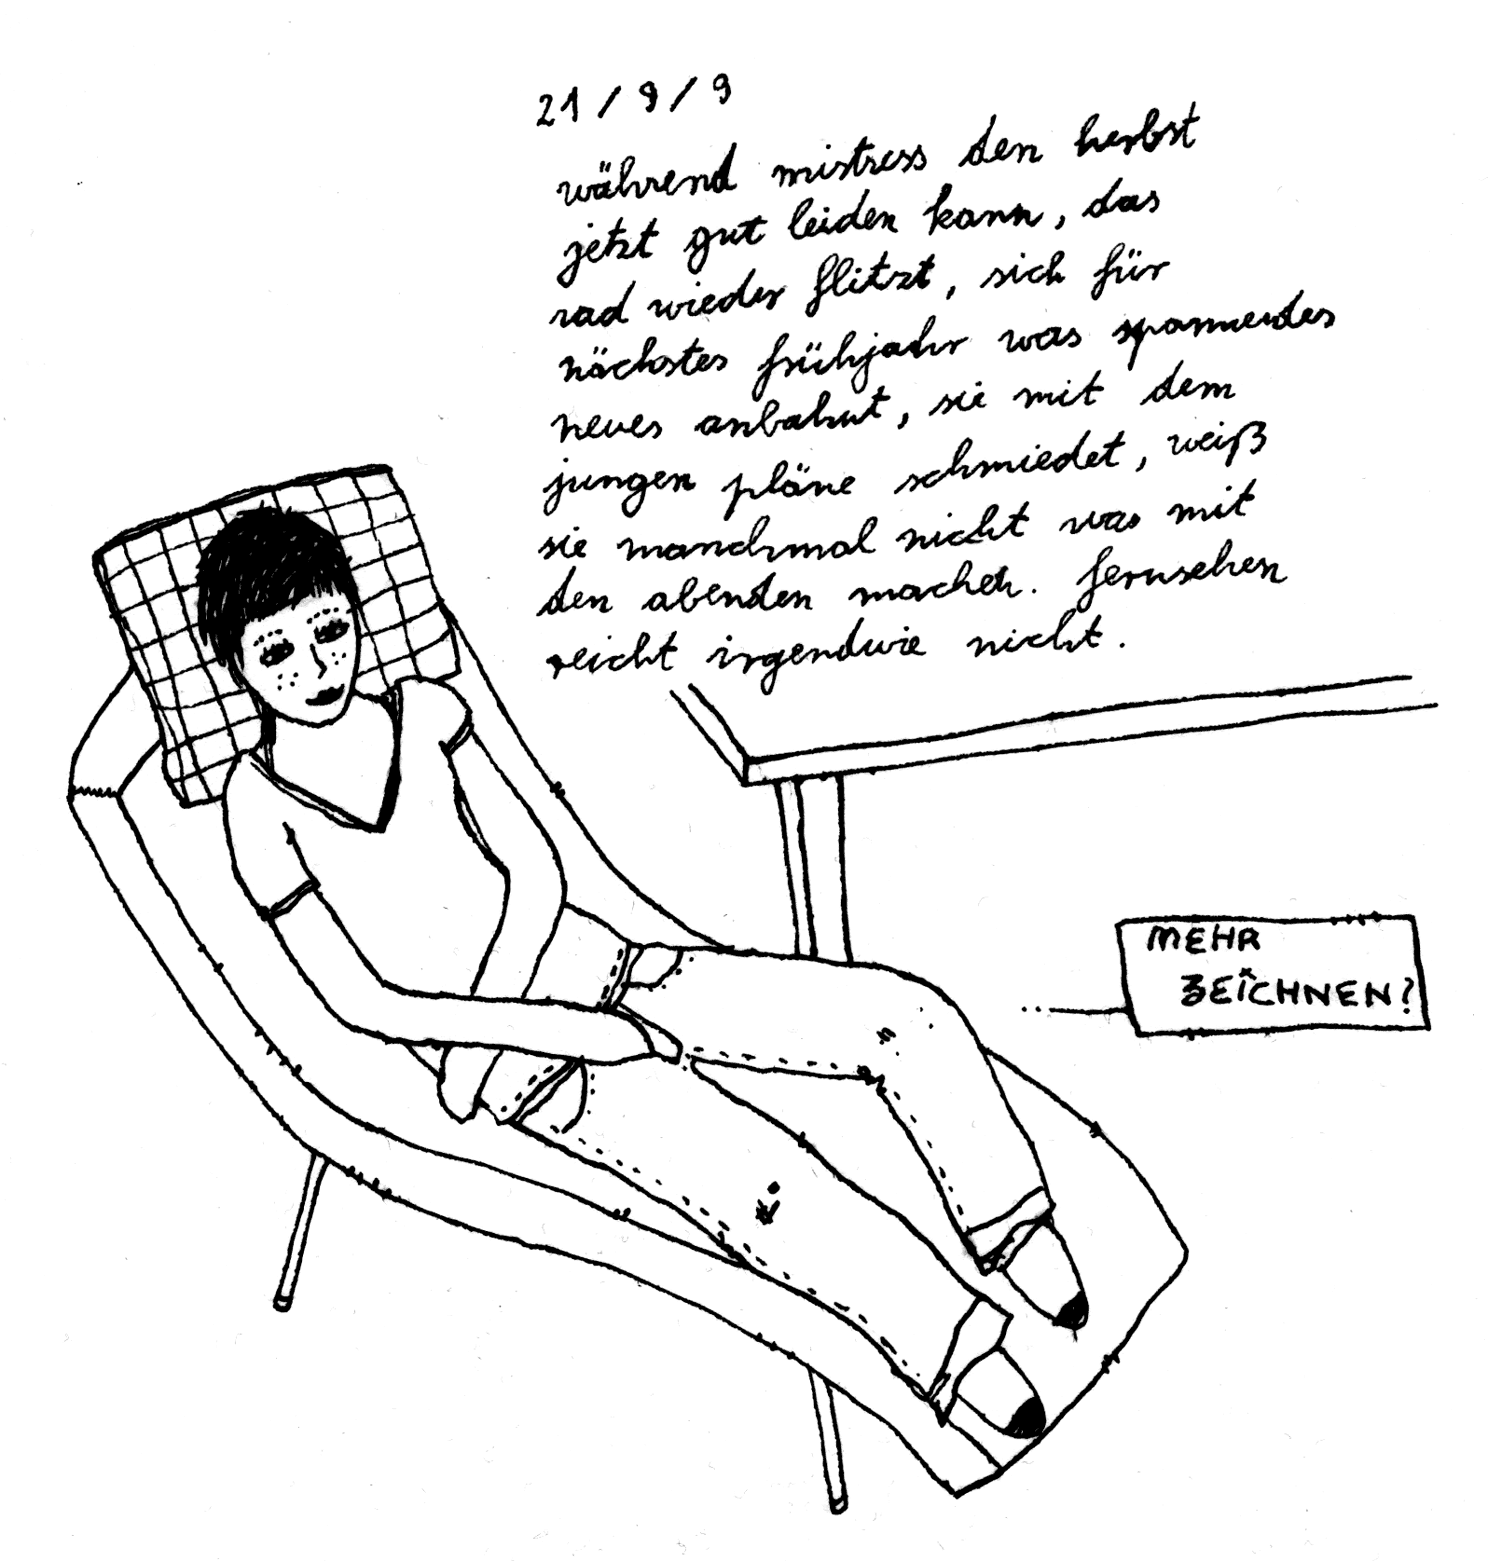 21/9/9
während mistress den herbst
jetzt gut leiden kann, das
rad wieder flitzt, sich für
nächstes frühjahr was spannendes
neues anbahnt, sie mit dem
jungen pläne schmiedet, weiß
sie manchmal nicht was mit
den abenden machen. fernsehen
reicht irgendwie nicht.
MEHR
ZEICHNEN?